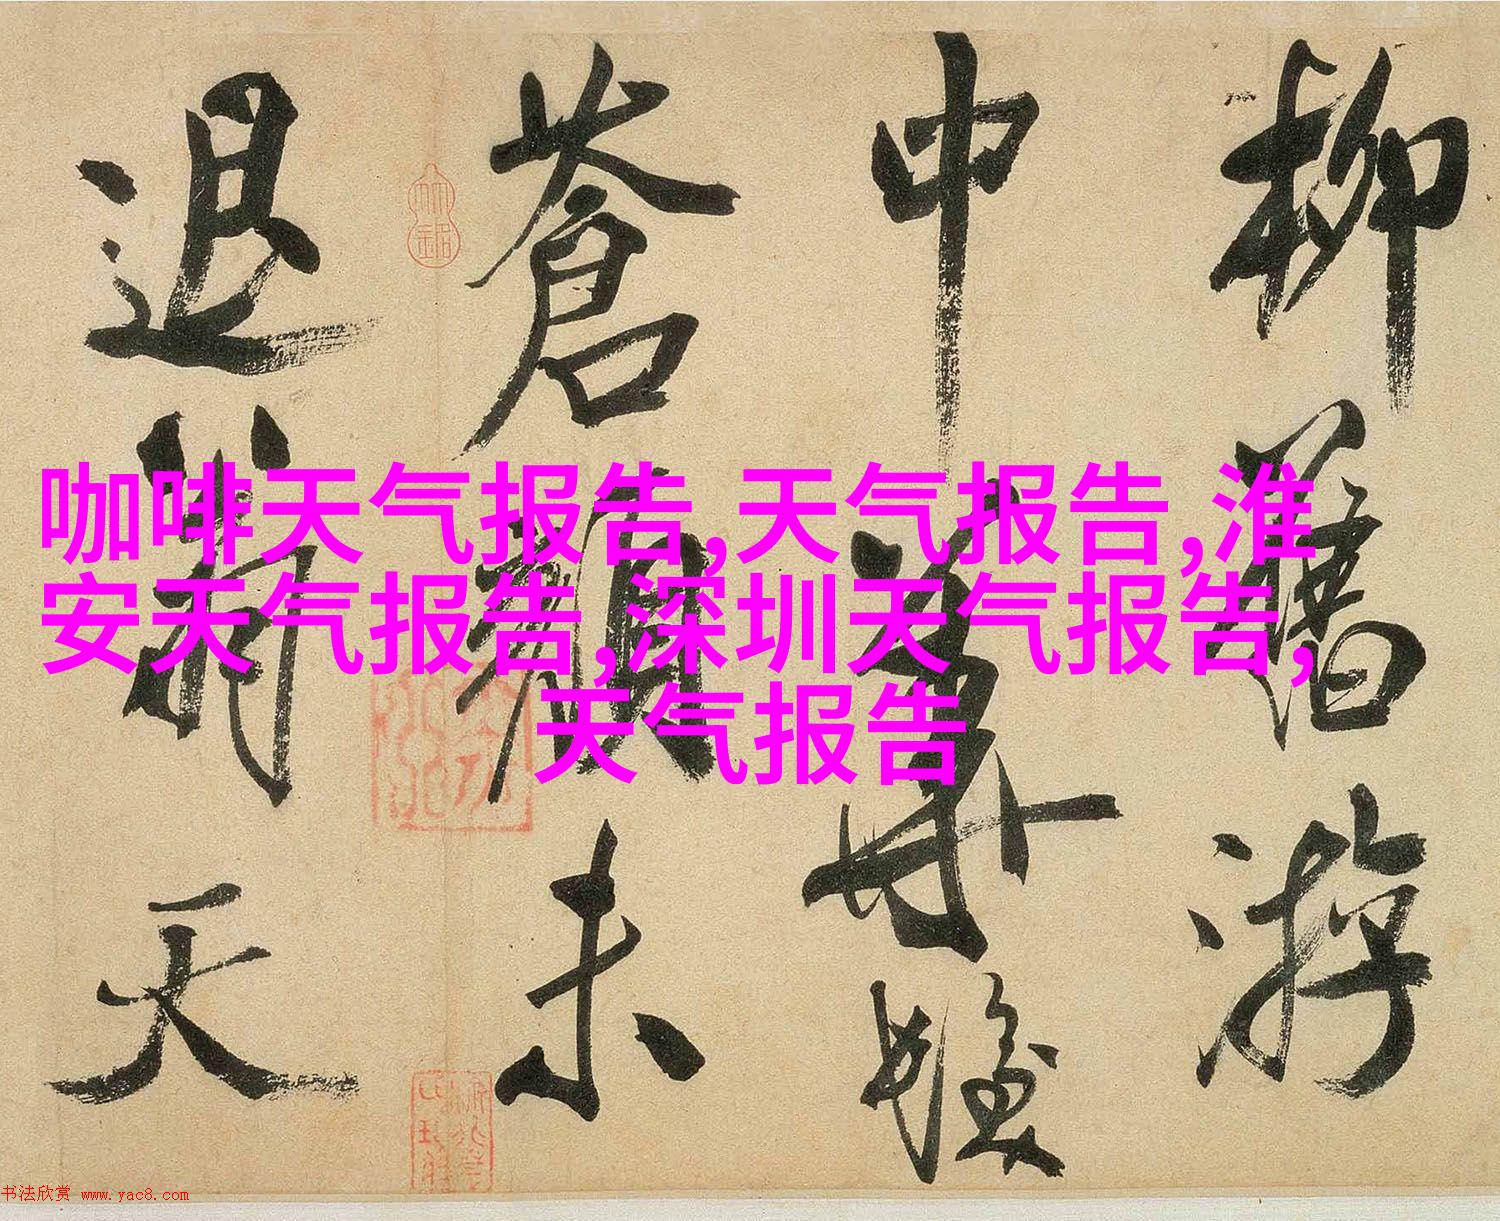 咖啡天气报告,天气报告,淮
安天气报告,深圳天气报告,
天气报告
柳舊游
中華
蒼顏未
退天
书法欣赏 www.yac8.com